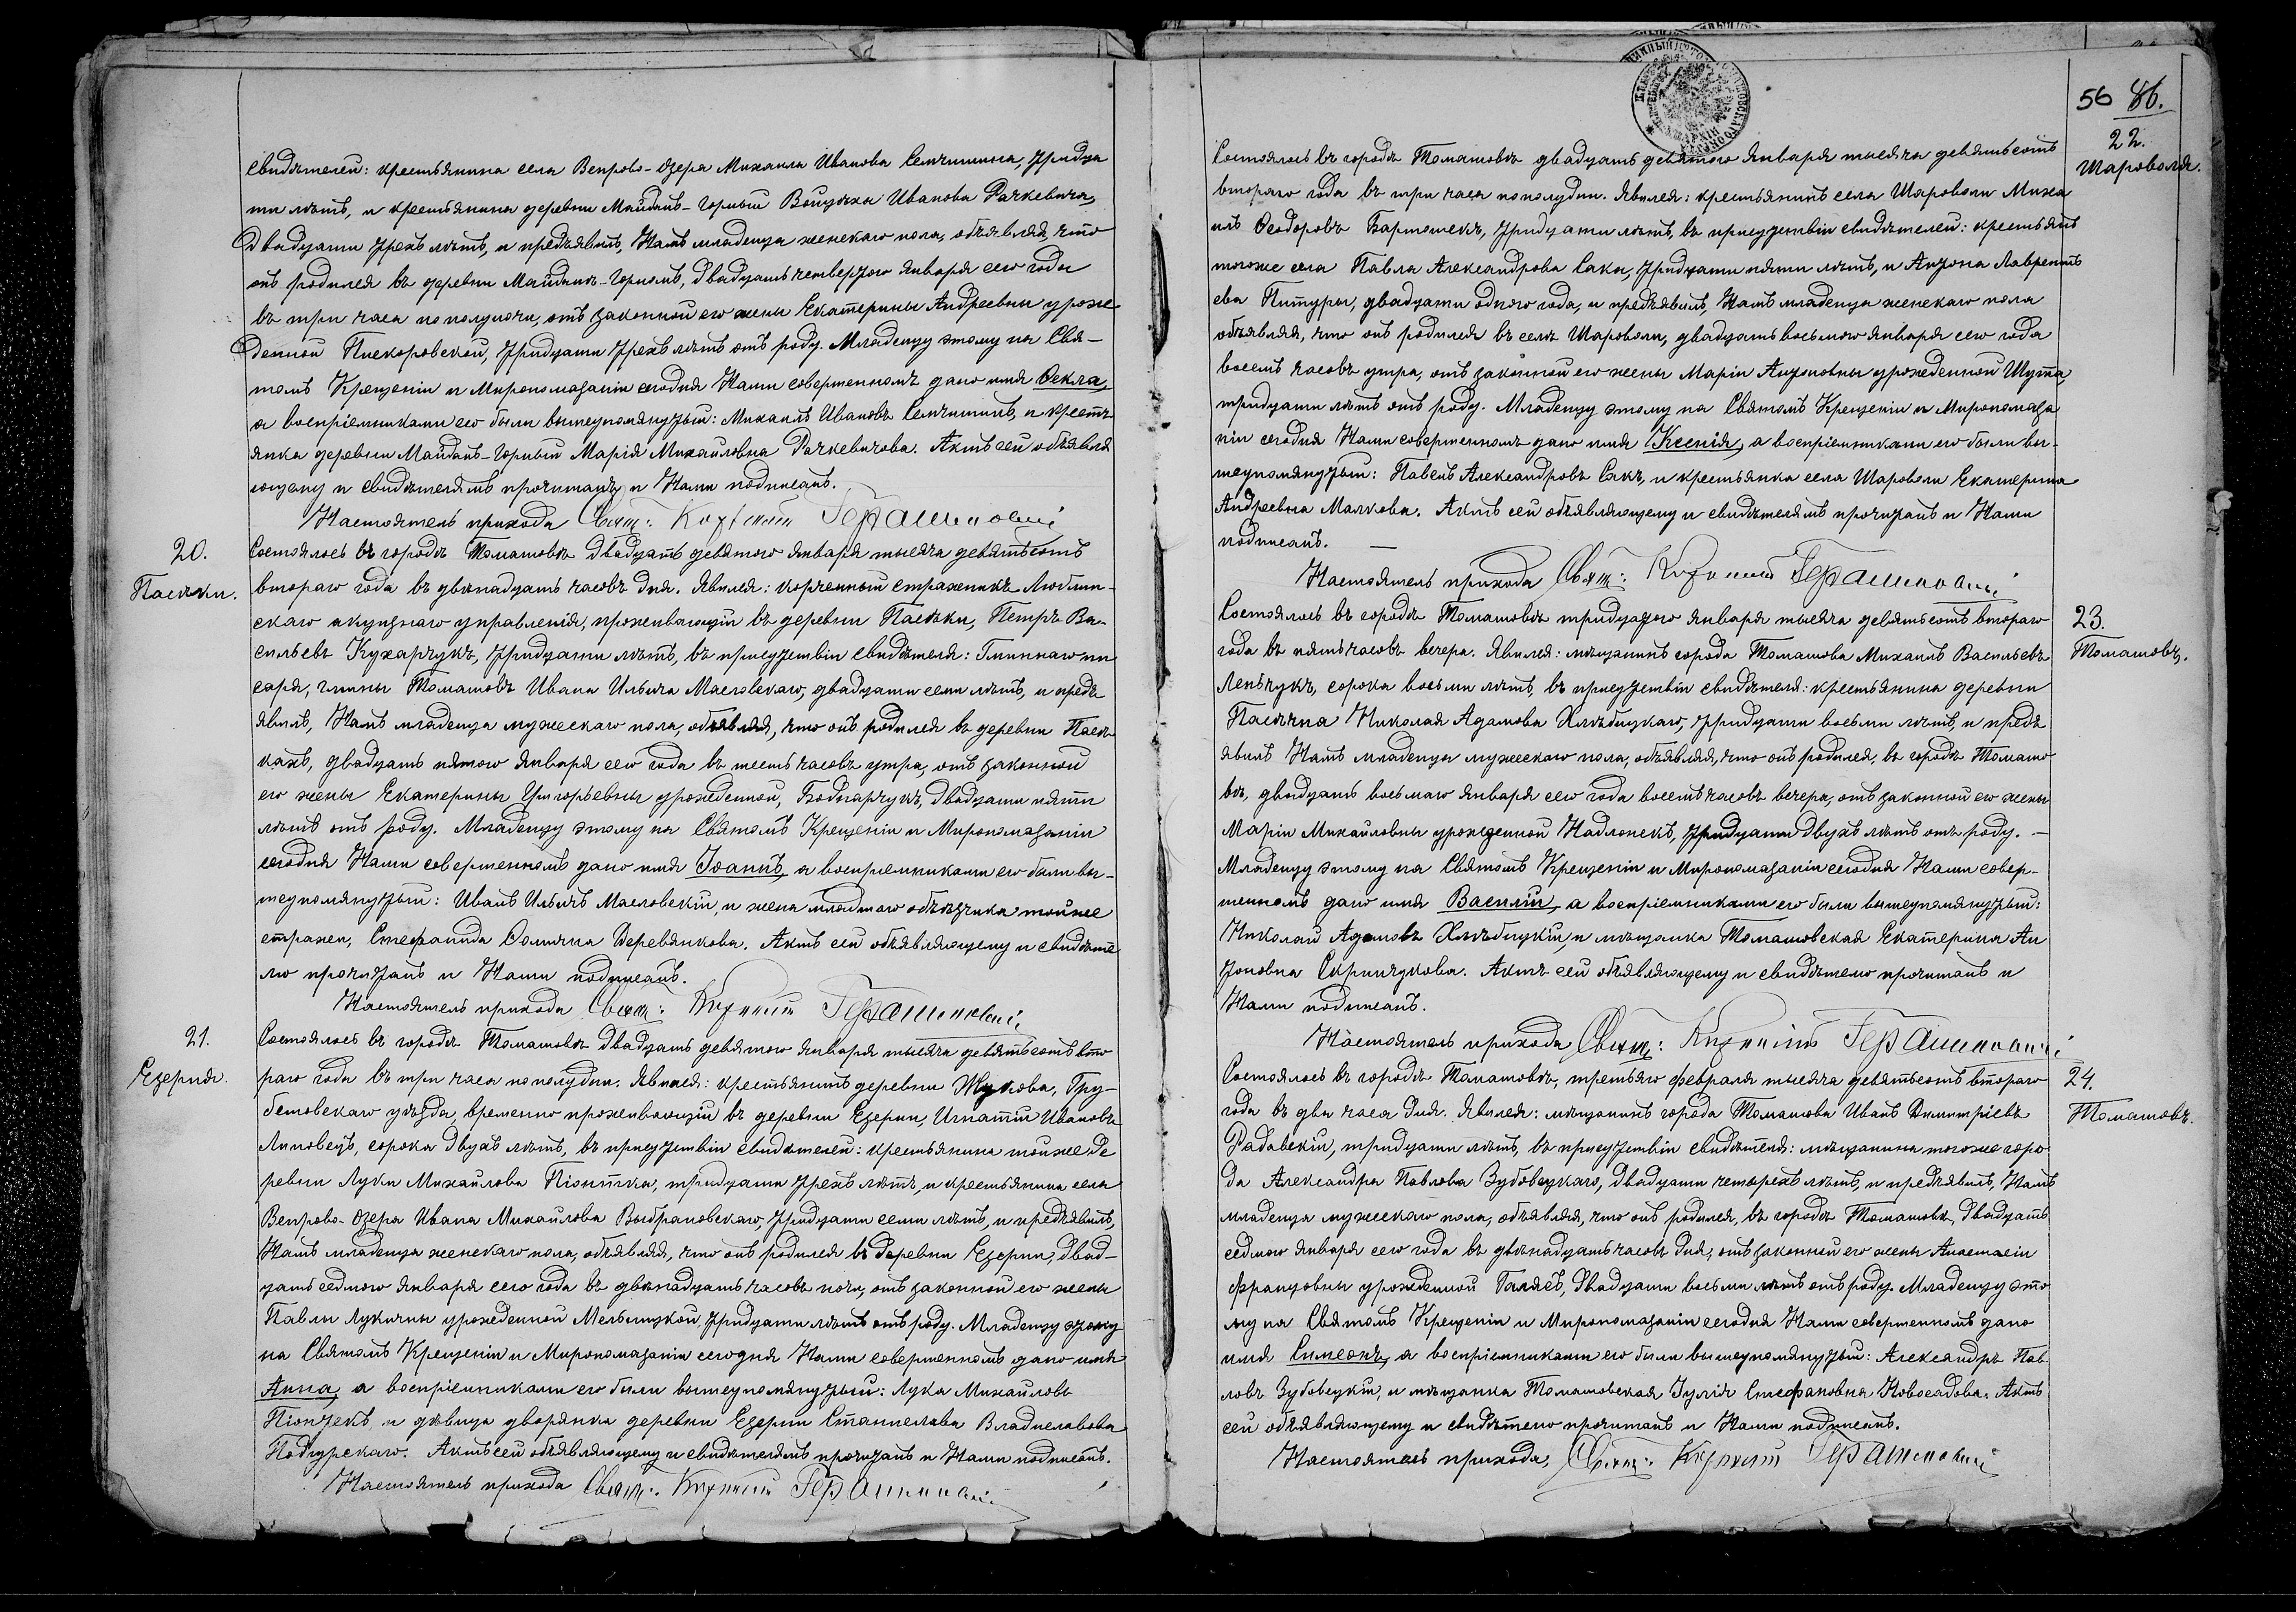 свидѣтелей: крестьянина села Вепрово-Озера Михаила Иванова Семчишина, тридца
ти лѣтъ, и крестьянина деревни Майданъ-Горный Войцѣха Иванова Рачкевича,
двадцати трехъ лѣтъ, и предъявилъ Намъ младенца женскаго пола, объявляя, что
онъ родился въ деревни Майданѣ-Горномъ, двадцать четвертого Января сего года
въ три часа по полуночи, отъ законной его жены Екатерины Андреевны урож
денной Пискоровской, тридцати трехъ лѣтъ отъ роду. Младенцу этому на Свя-
томъ Крещеніи и Миропомазаніи сегодня Нами совершенномъ дано имя Ѳекла,
а воспріемниками его были вышеупомянутый: Михаилъ Ивановъ Семчишинъ, и кресть
янка деревни Майданъ-Горный Марія Михайловна Рачкевичова. Актъ сей объявля
ющему и свидѣтелямъ прочитанъ и Нами подписанъ.
Настоятель прихода Свящ:
20.
Пасѣки.
Состоялось въ городѣ Томашовѣ двадцать девятого Января тысяча девятьсотъ
второго года въ двѣнадцать часовъ дня. Явился: корчемный стражникъ Люблин-
скаго акцизнаго управленія, проживающій въ деревни Пасѣки, Петръ Ва-
сильевъ Кухарчукъ, тридцати лѣтъ, въ присутствіи свидѣтеля: Гминнаго пи
саря, гмины Томашовъ Ивана Ильича Масловскаго, двадцати семи лѣтъ, и предъ
явилъ, Намъ младенца мужескаго пола, объявляя, что онъ родился въ деревни Пасѣ
кахъ, двадцать пятого Января сего года въ шесть часовъ утра, отъ законной
его жены Екатерины Григорьевны урожденной, Боднарчукъ, двадцати пяти
лѣтъ отъ роду. Младенцу этому на Святомъ Крещеніи и Миропомазаніи
сегодня Нами совершенномъ дано имя Іоаннъ, а воспріемниками его были вы-
шеупомянутый: Иванъ Ильичъ Масловскій, и жена младшаго объѣзчика той же
стражи, Стефанида Деревянкова. Актъ сей объявляющему и свидѣте
лю прочитанъ и Нами подписанъ.
Настоятель прихода Свящ:
21.
Езерня.
Состоялось въ городѣ Томашовѣ двадцать девятого Января тысяча девятьсотъ вто
раго года въ три часа по полудни. Явился: крестьянинъ деревни Жукова, Гру-
бешовскаго уѣзда, временно проживающій въ деревни Езерни, Игнатій Ивановъ
Липовецъ, сорока двухъ лѣтъ, въ присутствіи свидѣтелей: крестьянина той же де
ревни Луки Михайлова Піонтка, тридцати трехъ лѣтъ, и крестьянина села
Вепрово-Озера Ивана Михайлова Выбрановскаго, тридцати семи лѣтъ, и предъявилъ,
Намъ младенца женскаго пола, объявляя, что онъ родился въ деревни Езерни, двад-
цать седмого Января сего года въ двѣнадцать часовъ ночи, отъ законной его жены
Павлы Лукичны урожденной Мельницкой, тридцати лѣтъ отъ роду. Младенцу этому
на Святомъ Крещеніи и Миропомазаніи сегодня Нами совершенномъ дано имя
Анна, а воспріемниками его были вышеупомянутый: Лука Михайловъ
Піонтекъ и дѣвица дворянка деревни Езерни Станислава Владиславова
Подгурскаго. Актъ сей объявляющему и свидѣтелямъ прочитанъ и Нами подписанъ.
Настоятель прихода Свящ:
56 86.
22.
Шароволя.
Состоялось въ городѣ Томашовѣ двадцать девятого Января тысяча девятьсотъ
второго года въ три часа по полудни. Явился: крестьянинъ села Шароволи Миха
илъ Ѳеодоровъ Бартошекъ, тридцати лѣтъ, въ присутствіи свидѣтелей: крестьянъ
того же села Павла Александрова Сака, тридцати пяти лѣтъ, и Антона Лаврентъ
ева Питуры, двадцати одного года, и предъявилъ, Намъ младенца женскаго пола
объявляя, что онъ родился въ селѣ Шароволи, двадцать восьмого Января сего года
восемь часовъ утра, отъ законной его жены Маріи Антоновны урожденной Шута,
тридцати лѣтъ отъ роду. Младенцу этому на Святомъ Крещеніи и Миропомаза
ніи сегодня Нами совершенномъ дано имя Ксенія, а воспріемниками его были вы-
шеупомянутый: Павелъ Александровъ Сакъ, и крестьянка села Шароволи Екатерина
Андреевна Малкова. Актъ сей объявляющему и свидѣтелямъ прочитанъ и Нами
подписанъ. —
Настоятель прихода Свящ:
23.
Томашовъ.
Состоялось въ городѣ Томашовѣ тридцатого Января тысяча девятьсотъ второго
года въ пять часовъ вечера. Явился: мѣщанинъ города Томашова Михаилъ Васильевъ
Леньчукъ, сорока восьми лѣтъ, въ присутствіи свидѣтеля: крестьянина деревни
Пасѣчна Николая Адамова Хлѣбицкаго, тридцати восьми лѣтъ, и предъ
явилъ Намъ младенца мужескаго пола, объявляя, что онъ родился, въ городѣ Томашо
вѣ, двадцать восьмаго Января сего года восемь часовъ вечера, отъ законной его жены
Маріи Михайловны урожденной Надлонекъ, тридцати двухъ лѣтъ отъ роду. —
Младенцу этому на Святомъ Крещеніи и Миропомазаніи сегодня Нами совер-
шенномъ дано имя Василій, а воспріемниками его были вышеупомянутый:
Николай Адамовъ Хлѣбицкій, и мѣщанка Томашовская Екатерина Ан
тоновна Скрипчукова. Актъ сей объявляющему и свидѣтелю прочитанъ и
Нами подписанъ.
Настоятель прихода Свящ:
24.
Томашовъ.
Состоялось въ городѣ Томашовѣ, третьяго февраля тысяча девятьсотъ второго
года въ два часа дня. Явился: мѣщанинъ города Томашова Иванъ Димитріевъ
Радовскій, тридцати лѣтъ, въ присутствіи свидѣтеля: мѣщанина того же горо
да Александра Павлова Зубовецкаго, двадцати четырехъ лѣтъ, и предъявилъ, Намъ
младенца мужескаго пола, объявляя, что онъ родился, въ городѣ Томашовѣ, двадцать
седмого Января сего года въ двѣнадцать часовъ дня, отъ законной его жены Анастасіи
Францовны урожденной Галясъ, двадцати восьми лѣтъ отъ роду. Младенцу это
му на Святомъ Крещеніи и Миропомазаніи сегодня Нами совершенномъ дано
имя Симеонъ, а воспріемниками его были вышеупомянутый: Александръ Пав
ловъ Зубовецкій, и мѣщанка Томашовская Іулія Стефановна Новосадова. Актъ
сей объявляющему и свидѣтелю прочитанъ и Нами подписанъ.
Настоятель прихода, Свящ: